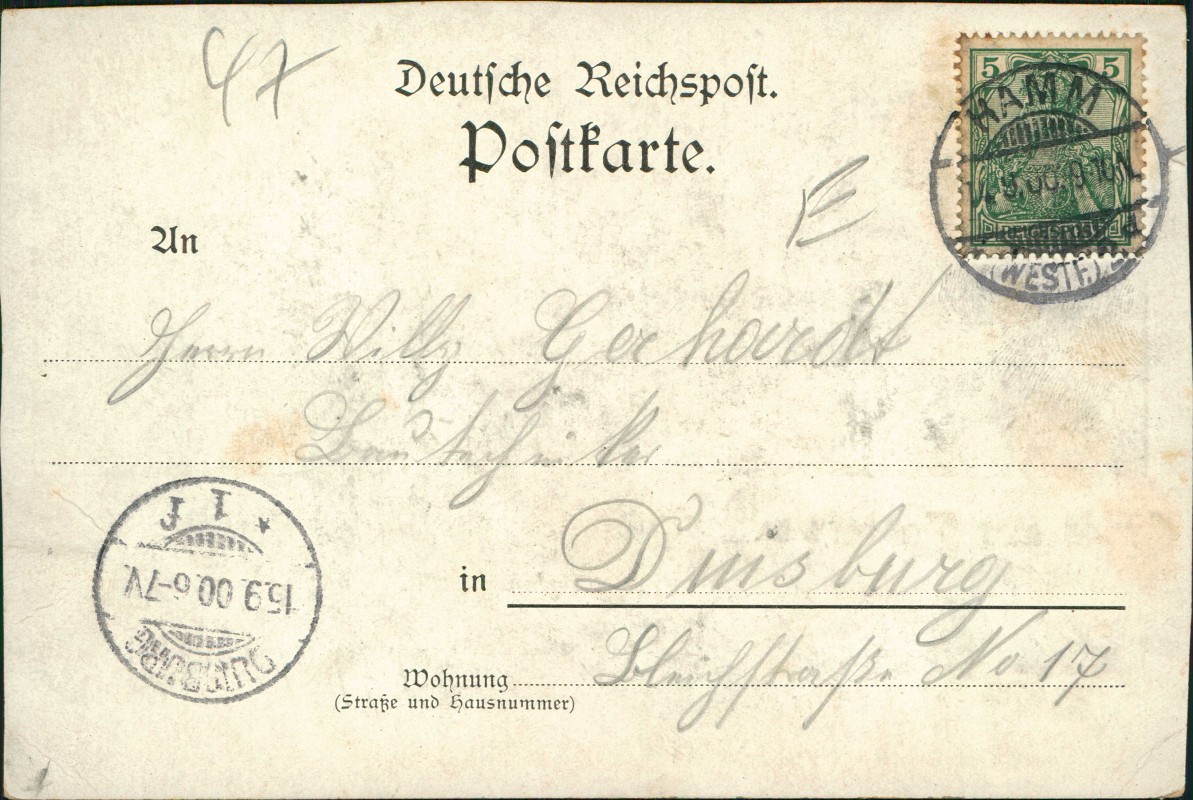 47
Deutsche Reichspost.
Postkarte.
5 5
REICHSPOST
HAMM
9.00.9-10N.
(WESTF.)
An
Herrn Willy Gerhardt
Bautechniker
in Duisburg
Wohnung Bleichstraße No 17
(Straße und Hausnummer)
DUISBURG
15.9.00.6-7V.
* 1 f